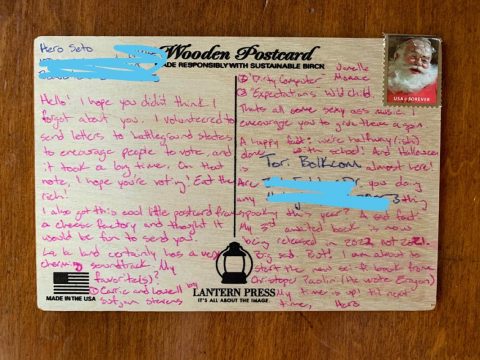 Wooden Postcard
MADE RESPONSIBLY WITH SUSTAINABLE BIRCH
Hero Seto
Hello! I hope you didn't think I
forgot about you. I volunteered to
send letters to battleground states
to encourage people to vote, and
it took a long time. On that
note, I hope you're voting! Eat the
rich!
I also got this cool little postcard from
a cheese factory and thought it
would be fun to send you.
La la land certainly has a very
soundtrack. My
favorite(s)?
① Carrie and Lowell by
Sufjan Stevens
MADE IN THE USA
② Dirty Computer Janelle
Monae
③ Expectations Wild Child
Thats all some sexy ass music. I
encourage you to give them a go
A happy fact: we're halfway (ish)
done with school! And Halloween
is Tori Bolkcom almost here!
Are you doing
any thing
spooky this year? A sad fact:
My 3rd awaited book is now
being released in 2022 not 2021.
Big sad. But, I am about to
start the new sci-fi book from
Christopher Paolini (He wrote Eragon)
My time is up! til next
time, Hero
LANTERN PRESS
IT'S ALL ABOUT THE IMAGE.
USA FOREVER